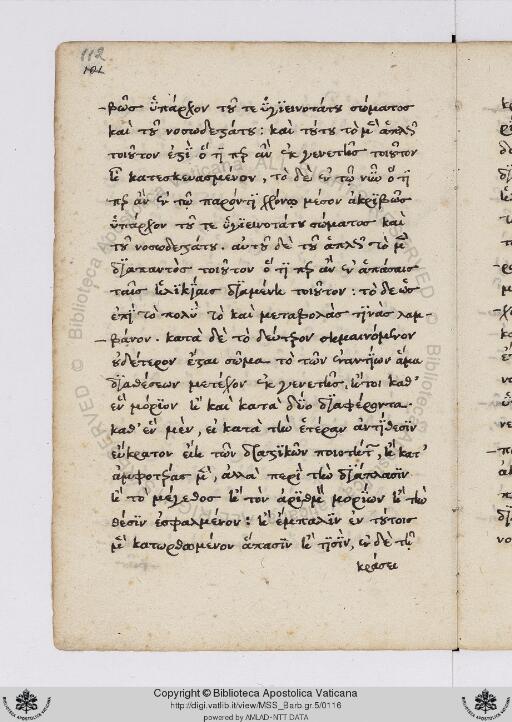 112
βῶς ὑπάρχον τοῦ τε ὑγιεινοτάτου σώματος
καὶ τοῦ νοσωδεστάτου: καὶ τούτου τὸ μὲν ἁπλῶς
τοιοῦτον ἐστὶ ὅ τι περ ἂν ἐκ γενετῆς τοιοῦτον
ᾖ κατεσκευασμένον, τὸ δὲ ἐν τῷ νῦν ὅ τι
περ ἂν ἐν τῷ παρόντι χρόνῳ μέσον ἀκριβῶς
ὑπάρχον τοῦ τε ὑγιεινοτάτου σώματος καὶ
τοῦ νοσωδεστάτου. αὐτοῦ δὲ τοῦ ἁπλῶς τὸ μὲν
διαπαντὸς τοιοῦτον ὅ τι περ ἂν ἐν ἁπάσαις
ταῖς ἡλικίαις διαμένῃ τοιοῦτον: τὸ δὲ ὡς
ἐπὶ τὸ πολὺ τὸ καὶ μεταβολάς τινας λαμ-
βάνον. κατὰ δὲ τὸ δεύτερον σημαινόμενον
οὐδέτερον ἔσται σῶμα τὸ τῶν ἐναντίων ἅμα
διαθέσεων μετέχον ἐκ γενετῆς, ἤτοι καθ'
ἓν μόριον ἢ καὶ κατὰ δύο διαφέροντα.
καθ' ἓν μὲν, εἰ κατὰ τὴν ἑτέραν ἀντίθεσιν
εὔκρατον εἴη τῶν δραστικῶν ποιοτήτων, ἢ κατ'
ἀμφοτέρας μὲν, ἀλλὰ περὶ τὴν διάπλασιν
ἢ τὸ μέγεθος ἢ τὸν ἀριθμὸν μορίων ἢ τὴν
θέσιν ἐσφαλμένον: ἢ ἔμπαλιν ἐν τούτοις
μὲν κατωρθωμένον ἅπασιν ἢ τισὶν, ἐν δὲ τῇ
κράσει
Copyright © Biblioteca Apostolica Vaticana
http://digi.vatlib.it/view/MSS_Barb.gr.5/0116
powered by AMLAD-NTT DATA